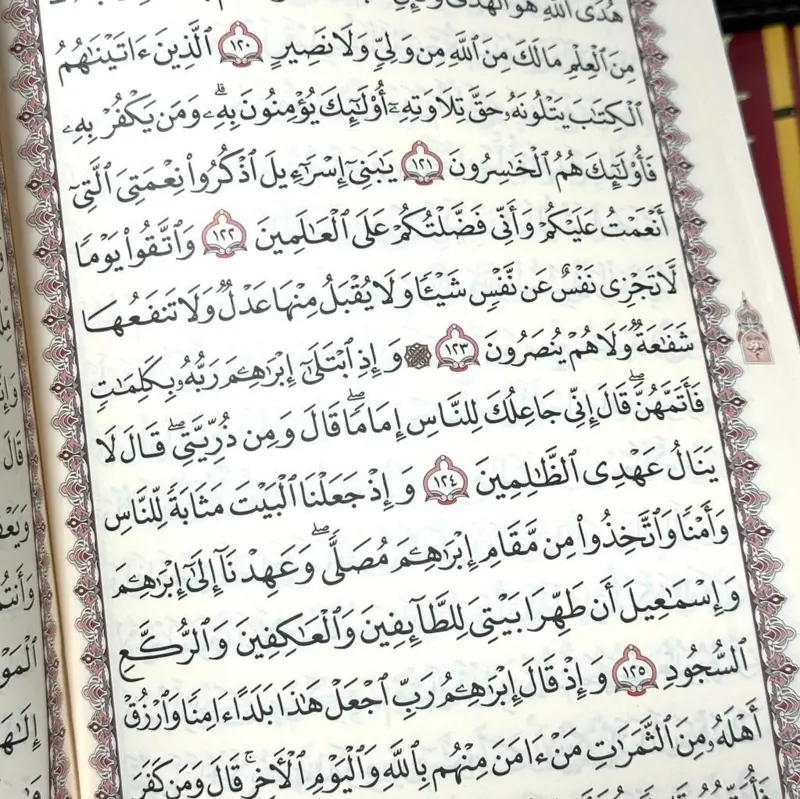 هُدَى ٱللَّهِ هُوَ ٱلْهُدَىٰ
مِنَ ٱلْعِلْمِ مَالَكَ مِنَ ٱللَّهِ مِن وَلِيٍّ وَلَا نَصِيرٍ ١٢٠ ٱلَّذِينَ ءَاتَيْنَٰهُمُ
ٱلْكِتَٰبَ يَتْلُونَهُۥ حَقَّ تِلَاوَتِهِۦٓ أُو۟لَٰٓئِكَ يُؤْمِنُونَ بِهِۦۗ وَمَن يَكْفُرْ بِهِۦ
فَأُو۟لَٰٓئِكَ هُمُ ٱلْخَٰسِرُونَ ١٢١ يَٰبَنِىٓ إِسْرَٰٓءِيلَ ٱذْكُرُوا۟ نِعْمَتِىَ ٱلَّتِىٓ
أَنْعَمْتُ عَلَيْكُمْ وَأَنِّى فَضَّلْتُكُمْ عَلَى ٱلْعَٰلَمِينَ ١٢٢ وَٱتَّقُوا۟ يَوْمًا
لَّا تَجْزِى نَفْسٌ عَن نَّفْسٍ شَيْـًٔا وَلَا يُقْبَلُ مِنْهَا عَدْلٌ وَلَا تَنفَعُهَا
شَفَٰعَةٌ وَلَا هُمْ يُنصَرُونَ ١٢٣ وَإِذِ ٱبْتَلَىٰٓ إِبْرَٰهِۦمَ رَبُّهُۥ بِكَلِمَٰتٍ
فَأَتَمَّهُنَّۖ قَالَ إِنِّى جَاعِلُكَ لِلنَّاسِ إِمَامًاۖ قَالَ وَمِن ذُرِّيَّتِىۖ قَالَ لَا
يَنَالُ عَهْدِى ٱلظَّٰلِمِينَ ١٢٤ وَإِذْ جَعَلْنَا ٱلْبَيْتَ مَثَابَةً لِّلنَّاسِ
وَأَمْنًا وَٱتَّخِذُوا۟ مِن مَّقَامِ إِبْرَٰهِۦمَ مُصَلًّىۖ وَعَهِدْنَآ إِلَىٰٓ إِبْرَٰهِۦمَ
وَإِسْمَٰعِيلَ أَن طَهِّرَا بَيْتِىَ لِلطَّآئِفِينَ وَٱلْعَٰكِفِينَ وَٱلرُّكَّعِ
ٱلسُّجُودِ ١٢٥ وَإِذْ قَالَ إِبْرَٰهِۦمُ رَبِّ ٱجْعَلْ هَٰذَا بَلَدًا ءَامِنًا وَٱرْزُقْ
أَهْلَهُۥ مِنَ ٱلثَّمَرَٰتِ مَنْ ءَامَنَ مِنْهُم بِٱللَّهِ وَٱلْيَوْمِ ٱلْأَخِرِۚ قَالَ وَمَن كَفَرَ